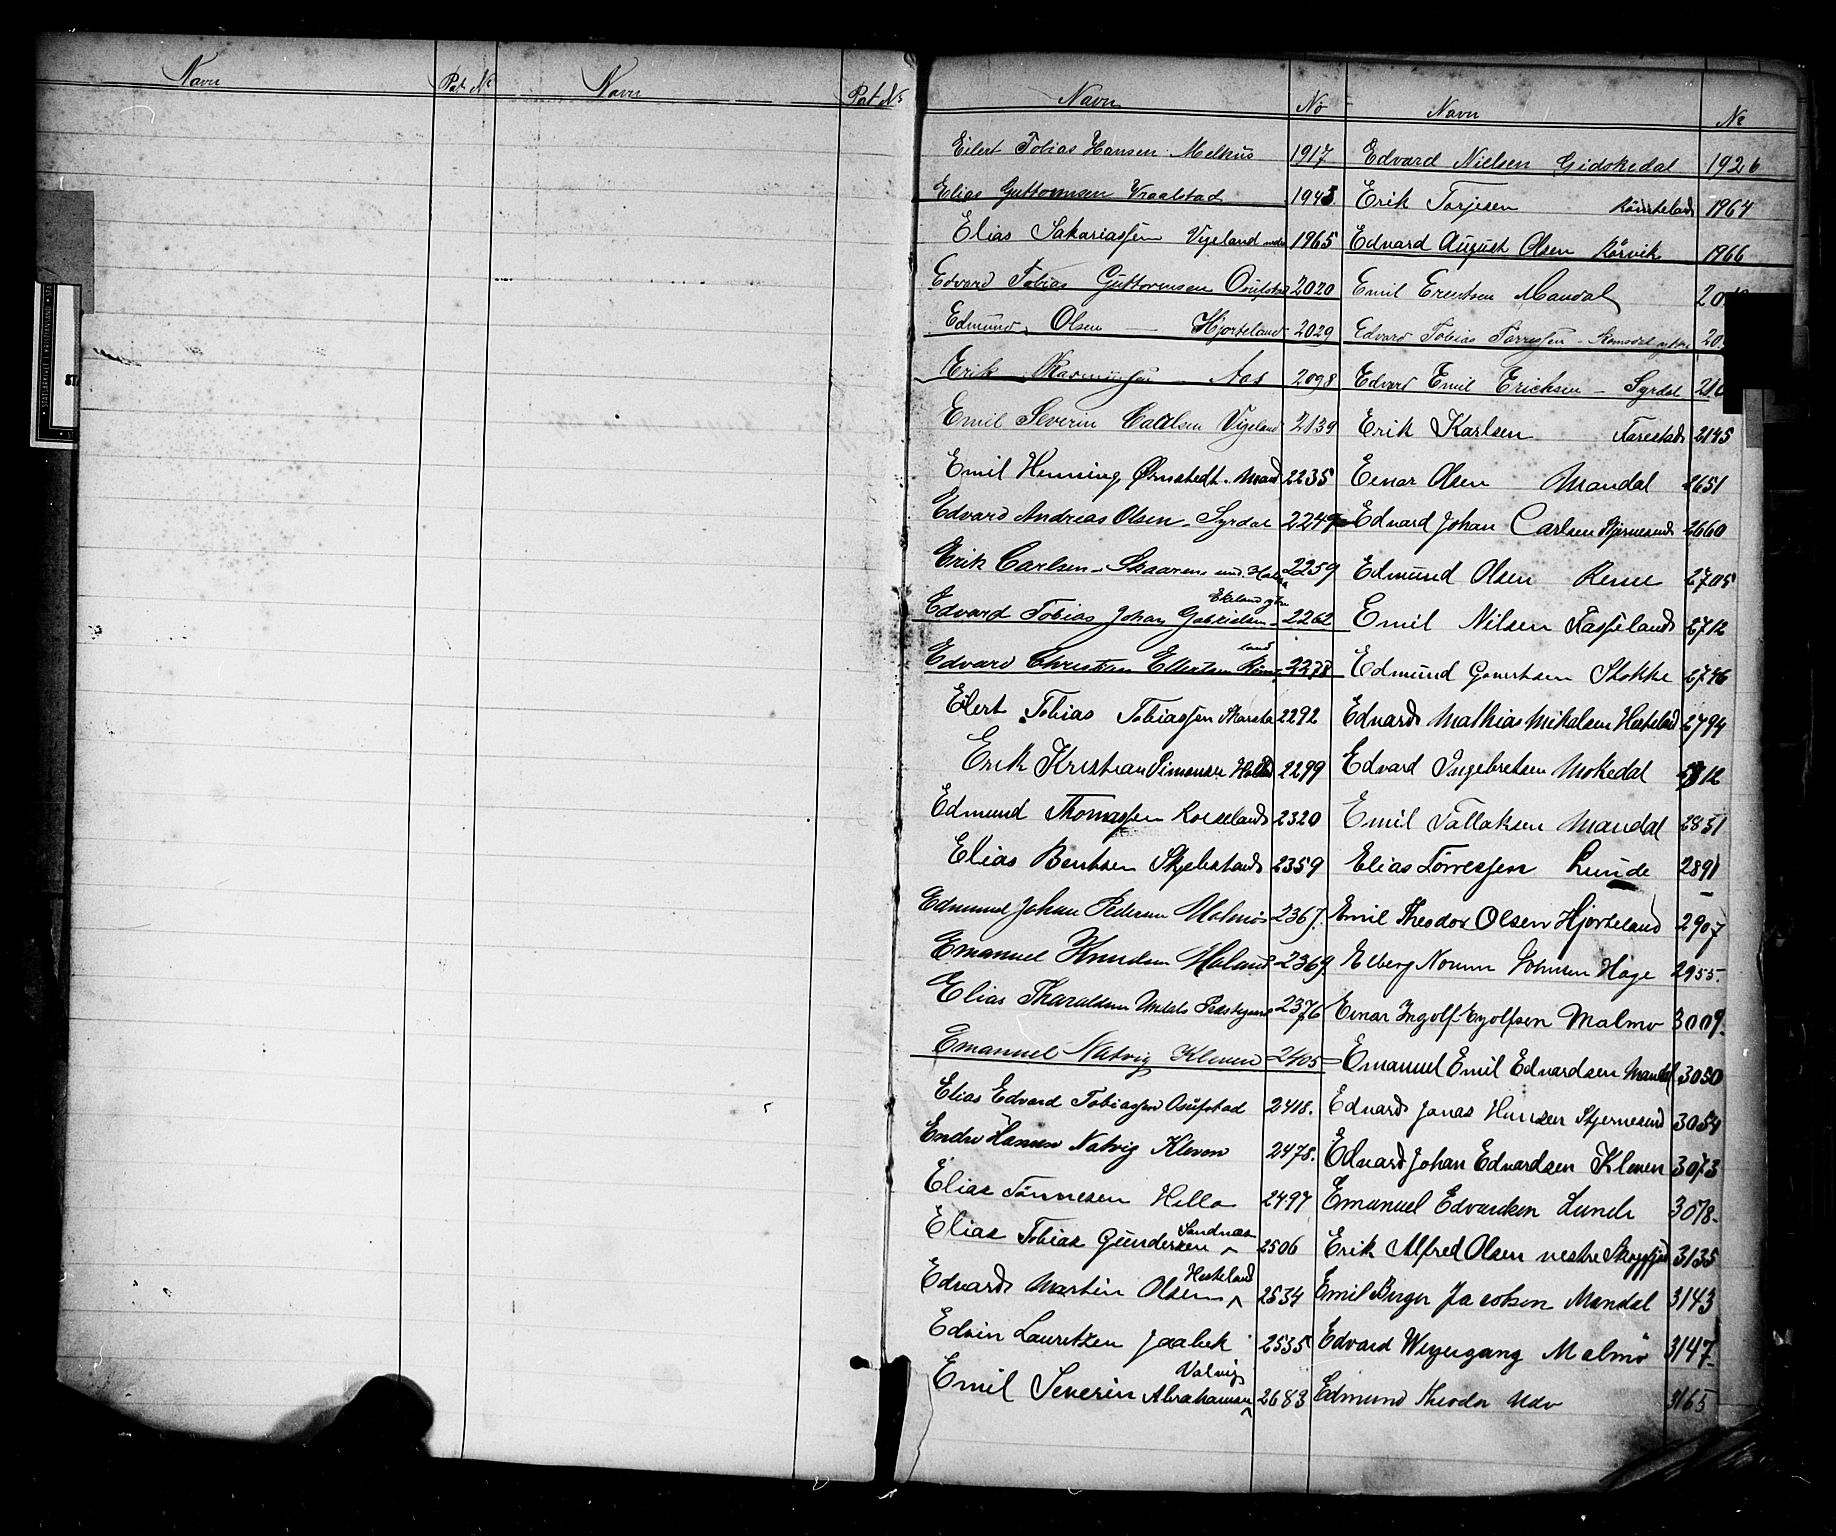 Navn Pat № Navn Pat №
Navn No Navn №
Eilert Tobias Hansen Melhus 1917 Edvard Nielsen Gidskedal 1926
Elias Guttormsen Vraalstad 1943 Erik Torjesen 1964
Elias Sakariassen Vigeland 1965 Edvard August Olsen Rörvik 1966
Edvard Tobias Guttormsen Osufstad 2020 Emil Erentsen Mandal
Edmund Olsen Hjorteland 2029 Edvard Tobias Tørressen
Erik Rasmussen Aas 2098 Edvard Emil Ericksen Syrdal
Emil Severin Vigeland 2139 Erik Karlsen Farestad 2145
Emil Henning Ørnstedt Mand 2235 Einar Olsen Mandal 2651
Edvard Andreas Olsen Syrdal 2249 Edvard Johan Carlsen Stjernesund 2660
Erik Carlsen Skaaren 2259 Edmund Olsen 2705
Ekeland ytre
Edvard Tobias Johan Gabrielsen 2262 Emil Nilsen Tasseland 2712
land
Edvard Christian Ellertsen 2278 Edmund Gunertsen Stokke 2746
Eilert Tobias Tobiassen 2292 Edvard Mathias Mikalsen Hesteland 2794
Erik Kristian Simonsen 2299 Edvard Ingebretsen Mokedal 2812
Edmund Thomassen Roiseland 2320 Emil Tallaksen Mandal 2851
Elias Bentsen Skjebstand 2359 Elias Törressen Lunde 2891
Edmund Johan Pedersen Malmö 2367. Emil Theodor Olsen Hjorteland 2907
Emanuel Knudsen Holand 2369 Elberg Johnsen Hage 2955.
Elias Tharaldsen 2376 Einar Ingolf Eyolfsen Malmö 3009.
Emanuel Natvig Kleven 2405 Emanuel Emil Edvardsen Mandal 3050
Elias Edvard Tobiassen Osufstad 2418. Edvard Jonas Hansen Stjernesund 3054
Endre Hansen Natvig Kleven 2478. Edvard Johan Edvardsen Kleven 3073
Elias Tönnesen Hille 2497 Emanuel Edvardsen Lunde 3078.
Sandnæs
Elias Tobias Gundersen 2506 Erik Alfred Olsen vestre 3135
Hesteland
Edvard Martin Olsen 2534 Emil Birger Jacobsen Mandal 3143
Edvin Lauretzen Jaabek 2535 Edvard Weyergang Malmö 3147.
Valvig
Emil Severin Abrahamsen 2683 Edmund Theodor 3165